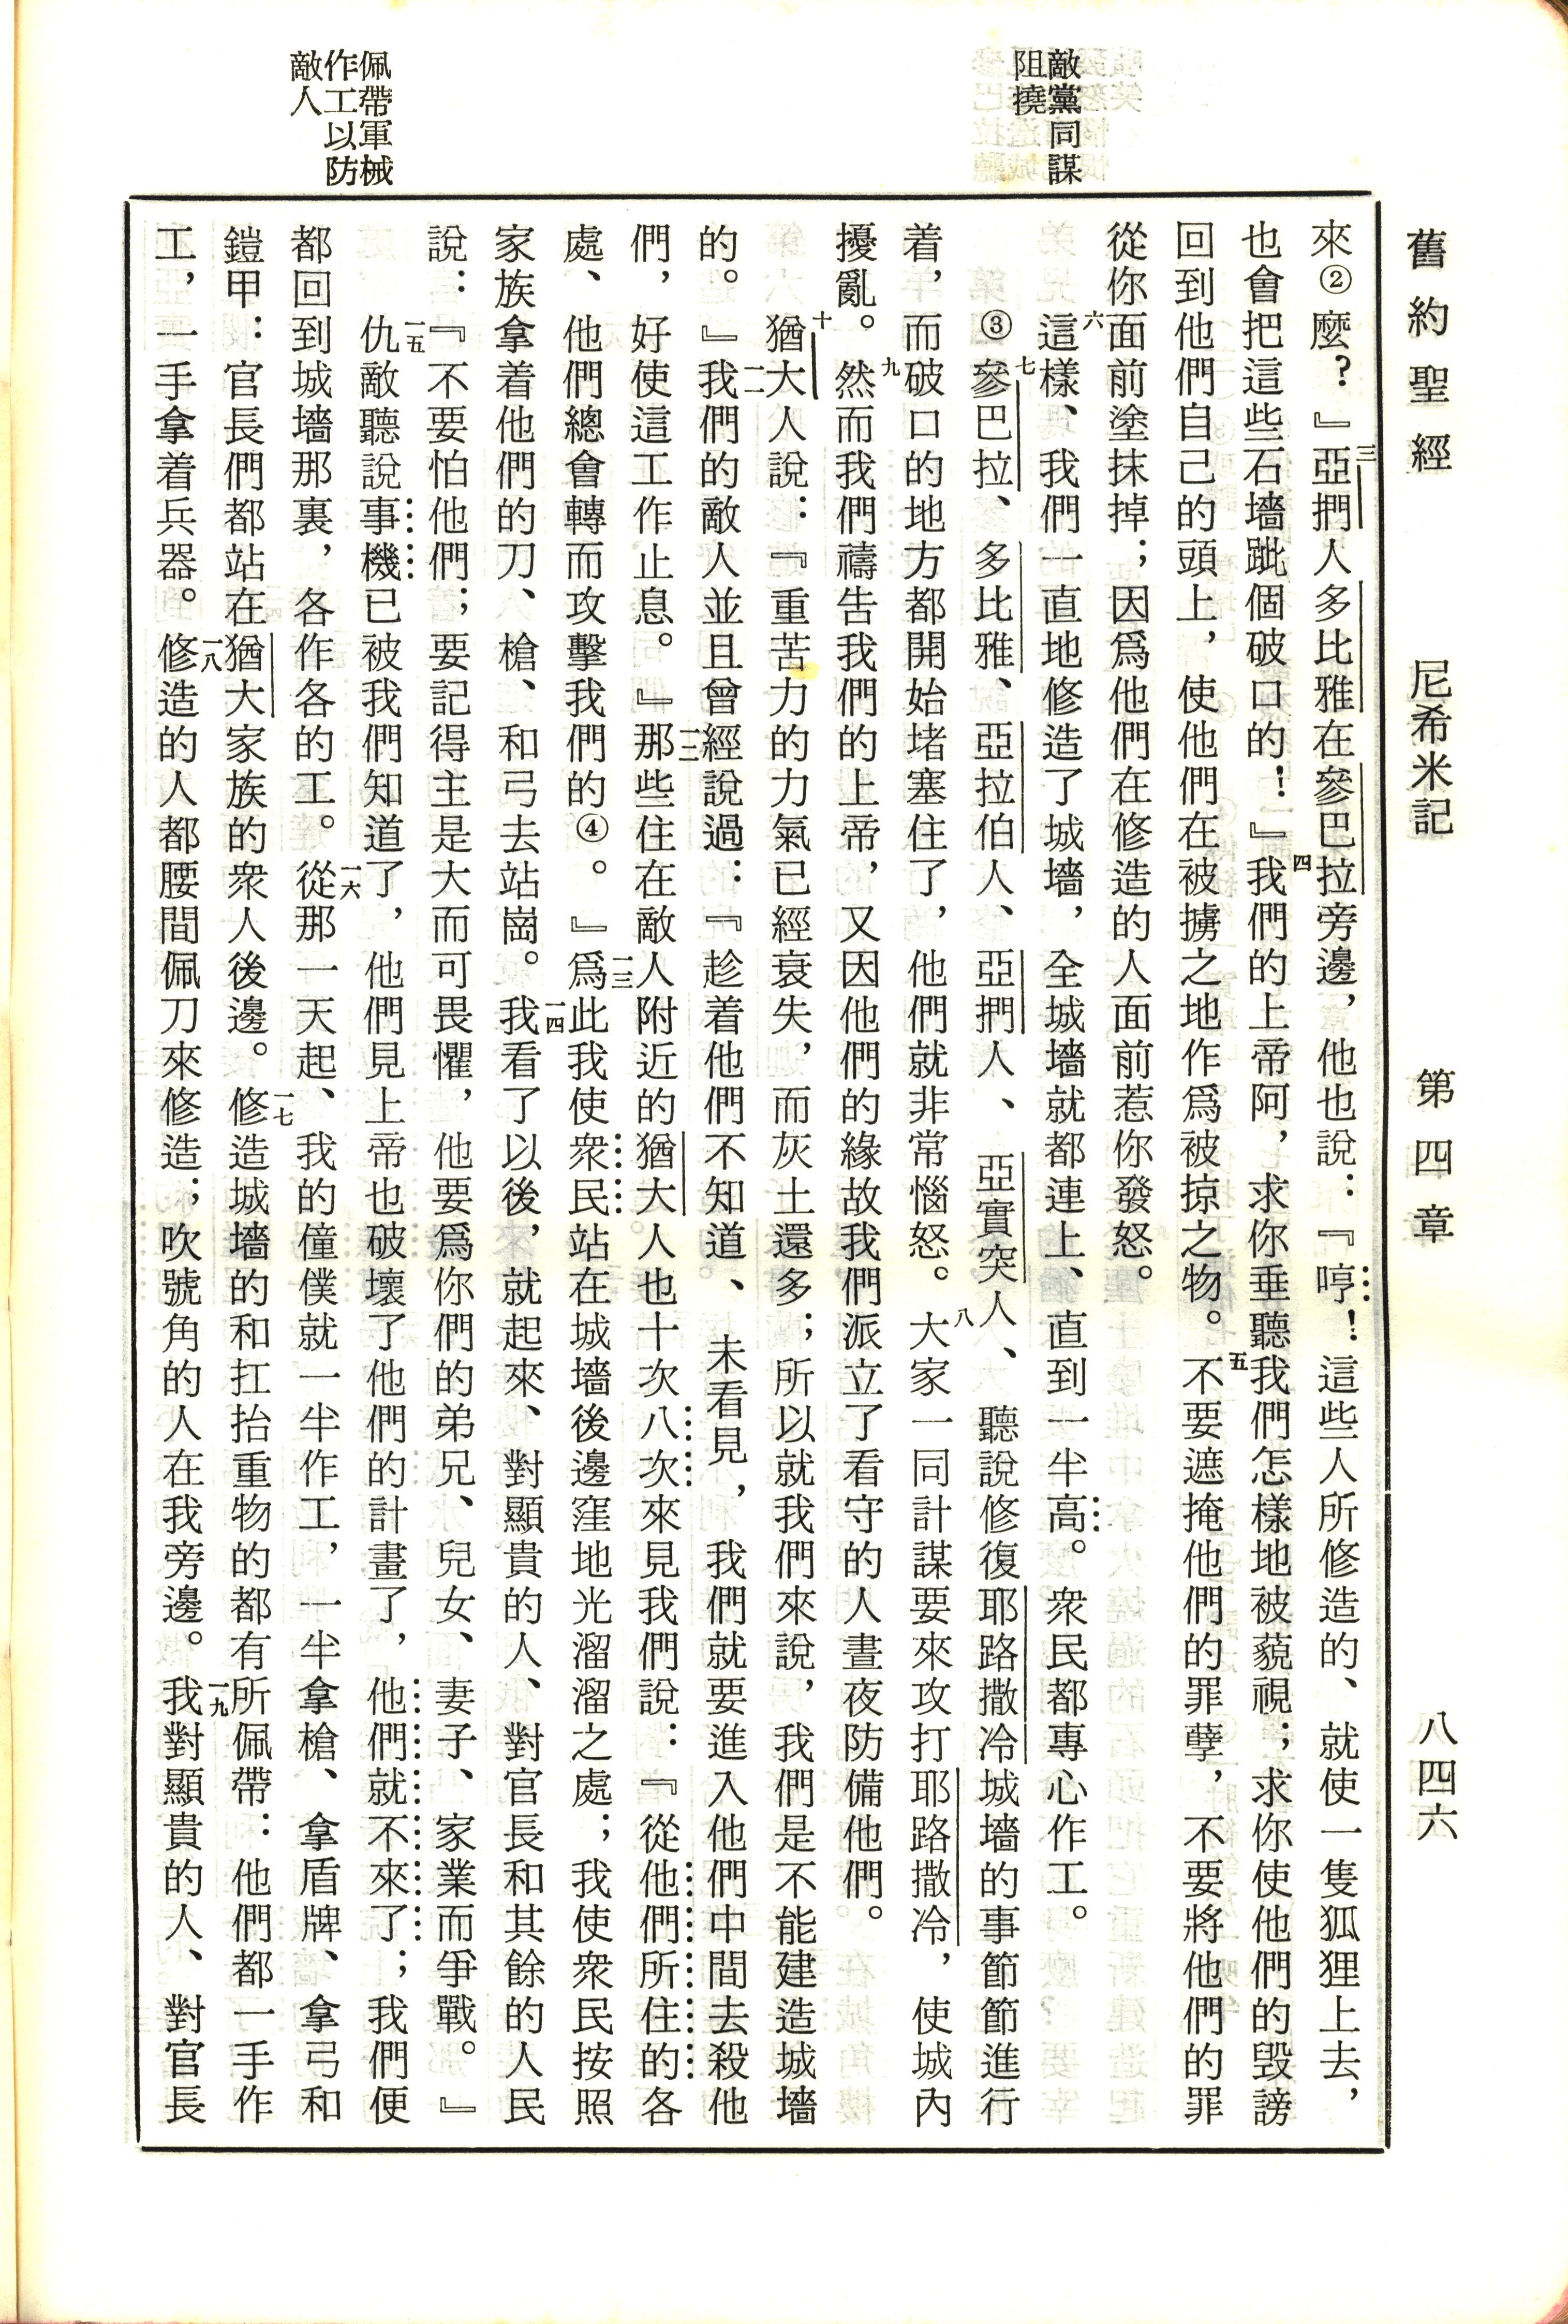 舊約聖經　尼希米記　第四章　八四六
敵黨同謀
阻撓
佩帶軍械
作工以防
敵人
來②麼？』三亞捫人多比雅在參巴拉旁邊，他也說：『哼！這些人所修造的、就使一隻狐狸上去，
也會把這些石墻跐個破口的！』四我們的上帝阿，求你垂聽我們怎樣地被藐視；求你使他們的毀謗
回到他們自己的頭上，使他們在被擄之地作爲被掠之物。五不要遮掩他們的罪孽，不要將他們的罪
從你面前塗抹掉；因爲他們在修造的人面前惹你發怒。
六這樣、我們一直地修造了城墻，全城墻就都連上、直到一半高。衆民都專心作工。
③七參巴拉、多比雅、亞拉伯人、亞捫人、亞實突人、聽說修復耶路撒冷城墻的事節節進行
着，而破口的地方都開始堵塞住了，他們就非常惱怒。八大家一同計謀要來攻打耶路撒冷，使城內
擾亂。九然而我們禱告我們的上帝，又因他們的緣故我們派立了看守的人晝夜防備他們。
十猶大人說：『重苦力的力氣已經衰失，而灰土還多；所以就我們來說，我們是不能建造城墻
的。』一一我們的敵人並且曾經說過：『趁着他們不知道、未看見，我們就要進入他們中間去殺他
們，好使這工作止息。』一二那些住在敵人附近的猶大人也十次八次來見我們說：『從他們所住的各
處、他們總會轉而攻擊我們的④。』一三爲此我使衆民站在城墻後邊窪地光溜溜之處；我使衆民按照
家族拿着他們的刀、槍、和弓去站崗。一四我看了以後，就起來、對顯貴的人、對官長和其餘的人民
說：『不要怕他們；要記得主是大而可畏懼，他要爲你們的弟兄、兒女、妻子、家業而爭戰。』
一五仇敵聽說事機已被我們知道了，他們見上帝也破壞了他們的計畫了，他們就不來了；我們便
都回到城墻那裏，各作各的工。一六從那一天起、我的僮僕就一半作工，一半拿槍、拿盾牌、拿弓和
鎧甲：官長們都站在猶大家族的衆人後邊。一七修造城墻的和扛抬重物的都有所佩帶：他們都一手作
工，一手拿着兵器。一八修造的人都腰間佩刀來修造；吹號角的人在我旁邊。一九我對顯貴的人、對官長